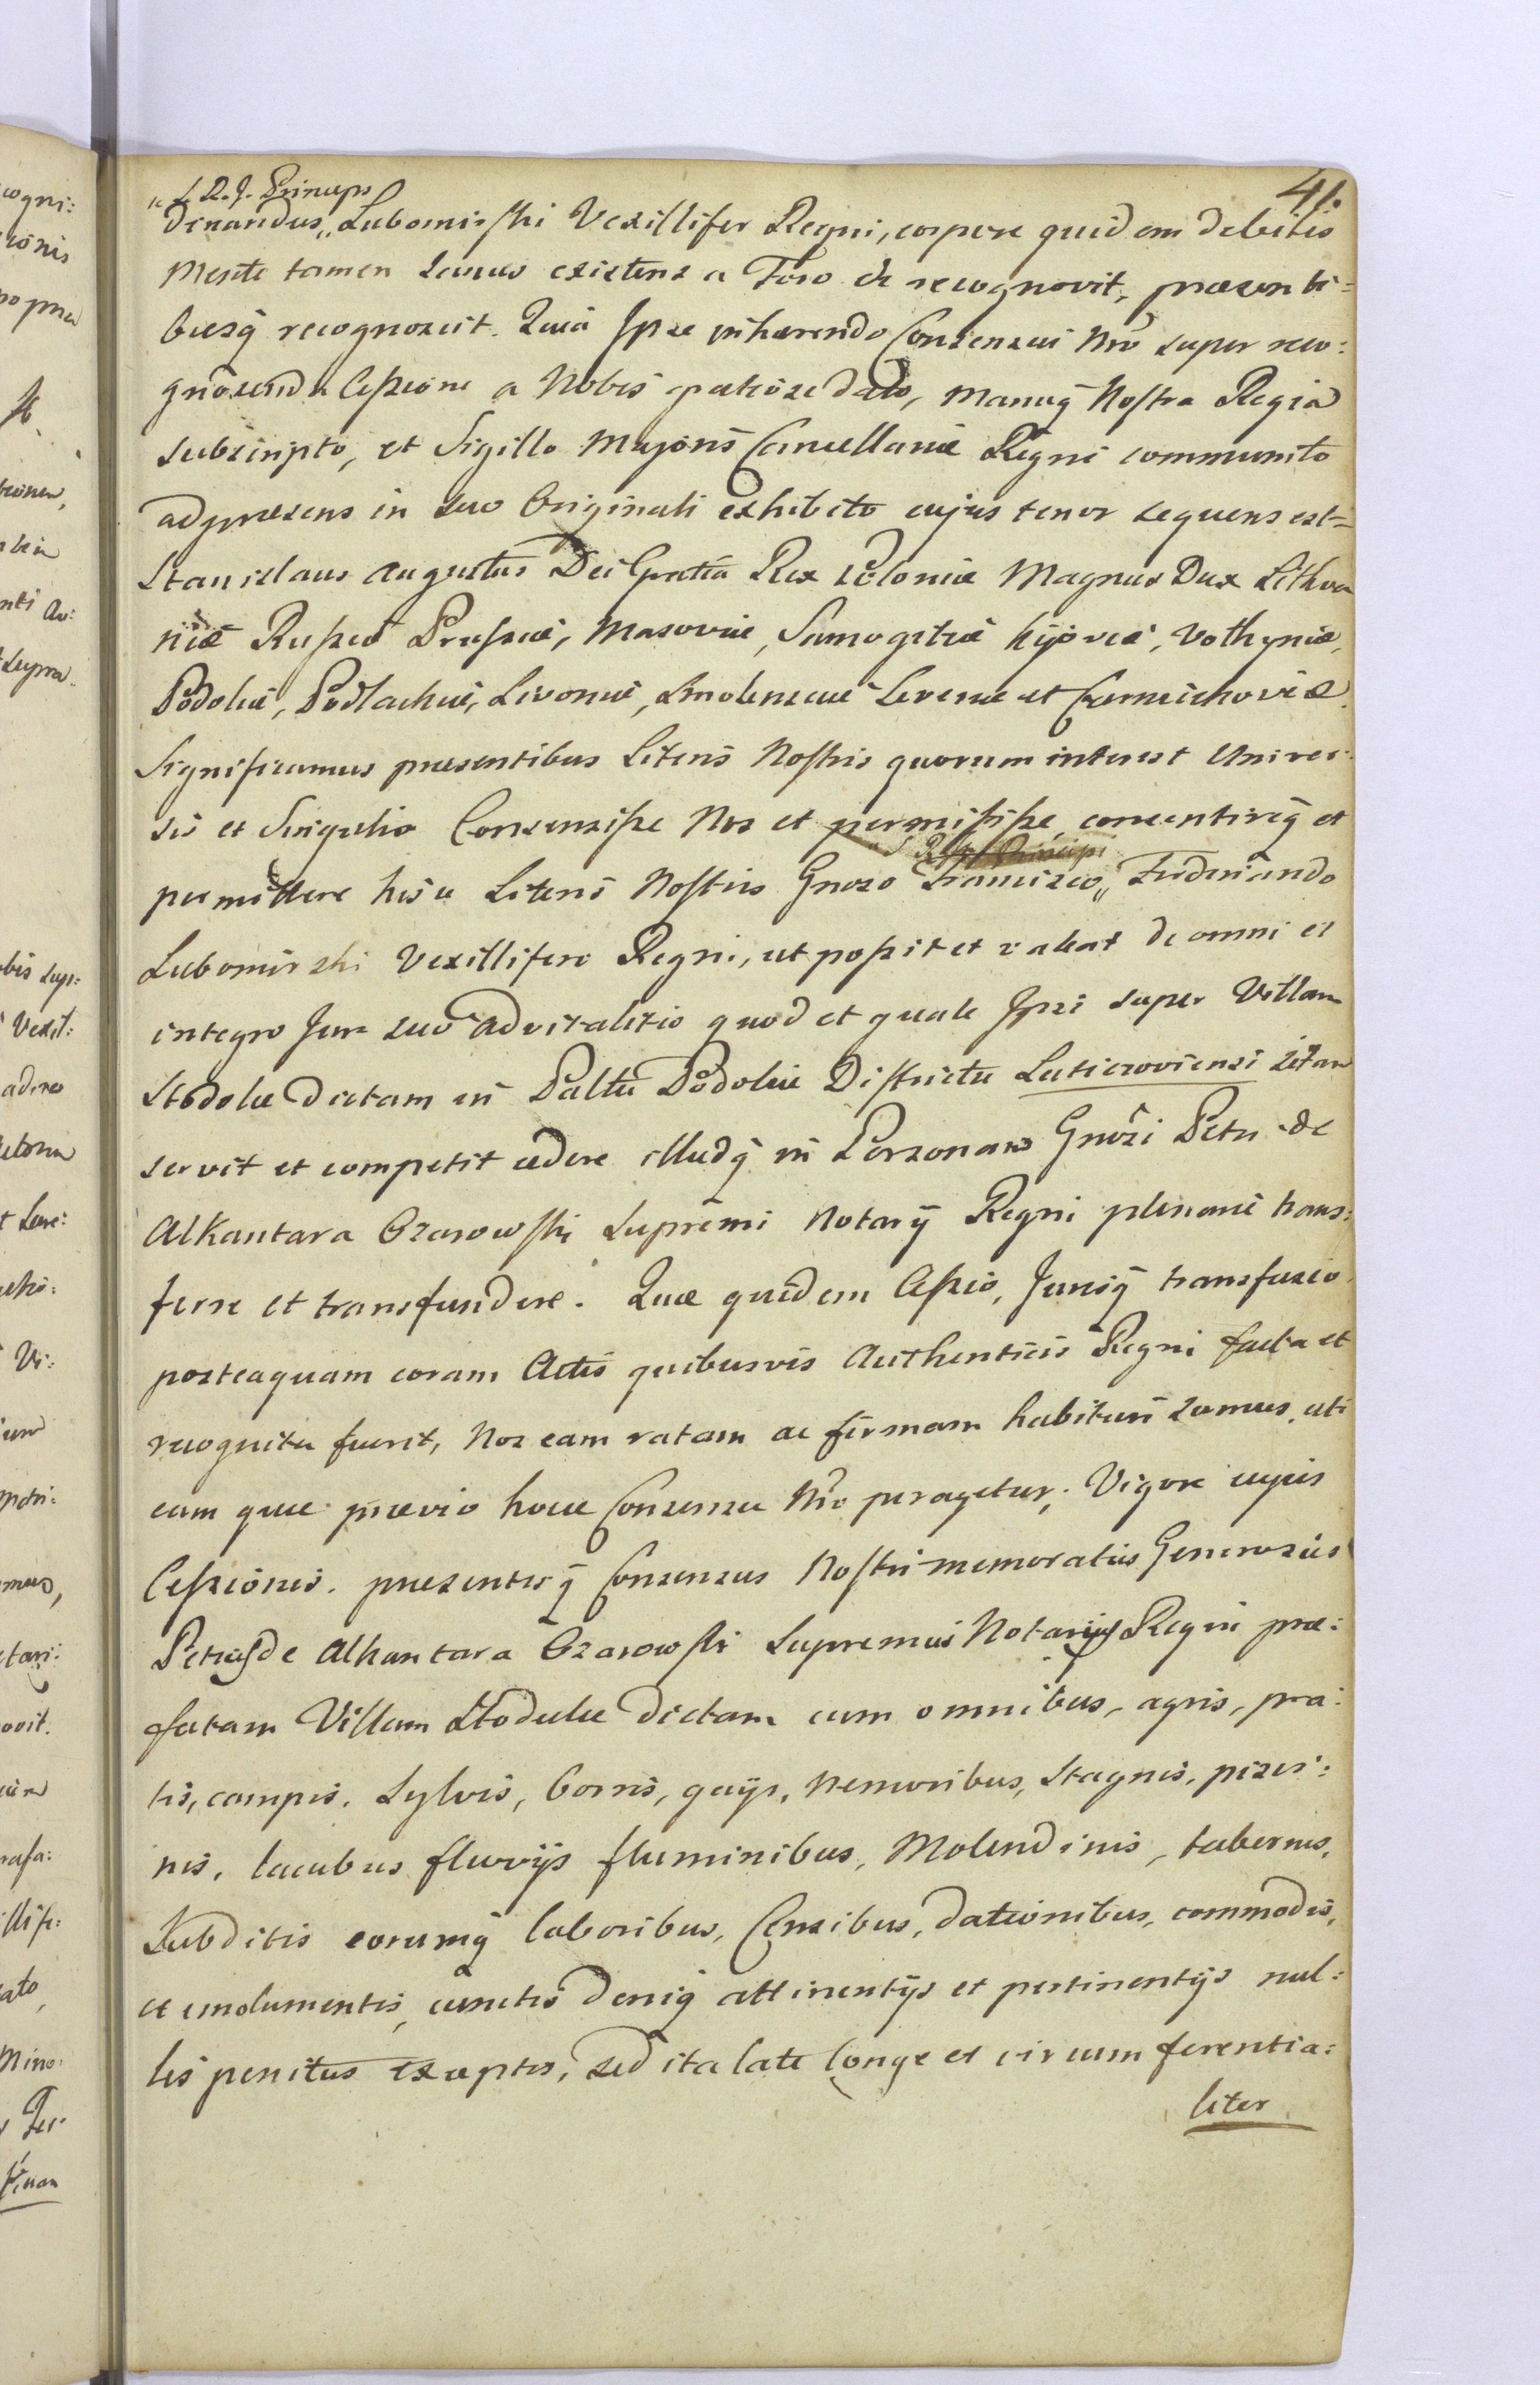 41.
" S. R. J. Princeps
dinandus „ Lubomirski Vexillifer Regni, corpore quidem debilis
Mente tamen sanus existens a Foro de recognovit, præsenti=
busq recognoscit. Quia Ipse inhærendo Consensui Nro super reco:
gnoscenda Cessione a Nobis gratiose dato, manuq Nostra Regia
subscripto, et Sigillo Majoris Cancellariæ Regni communito
ad præsens in suo Originali exhibito cujus tenor sequens est=
Stanislaus Augustus Dei Gratia Rex Poloniæ Magnus Dux Lithua
niæ Russiæ Prussiæ, Masoviæ, Samogitiæ Kijoviæ, Volhyniæ,
Podoliæ, Podlachiæ, Livoniæ, Smolensciæ Severiæ et Czerniechoviæ.
Significamus præsentibus Literis Nostris quorum interest Univer
sis et Singulis Consensisse Nos et permisisse, consentireq et
S. R. J. Principi
permittere hisce Literis Nostris Gnoso Francisco „ Ferdinando
Lubomirski Vexillifero Regni, ut possit et valeat de omni et
integro Jure suo advitalitio quod et quale Ipsi super Villam
Stodolce dictam in Palttu Podoliæ Districtu Laticzoviensi sitam
servit et competit cedere illudq in Personam Gnosi Petri de
Alkantara Ozarowski Supremi Notarij Regni plenarie trans:
ferre et transfundere. Quæ quidem Cessio, Jurisq transfusio
posteaquam coram Actis quibusvis Authenticis Regni facta et
recognita fuerit, Nos eam ratam ac firmam habituri sumus, uti
eam quæ prævio hocce Consensu Nro peragetur; Vigore cujus
Cessionis, præsentisq Consensus Nostri memoratus Generosus
Petrus de Alkantara Ozarowski Supremus Notarius Regni præ:
fatam Villam Stodulce dictam cum omnibus, agris, pra:
tis, campis, Sylvis, borris, gajis, Nemoribus, Stagnis, pisci:
nis, lacubus fluvijs fluminibus, Molendinis, tabernis,
Subditis eorumq laboribus, Censibus, dationibus, commodis,
et emolumentis, cunctis deniq attinentijs et pertinentijs nul:
lis penitus exceptis, sed ita late longe et circumferentia:
liter